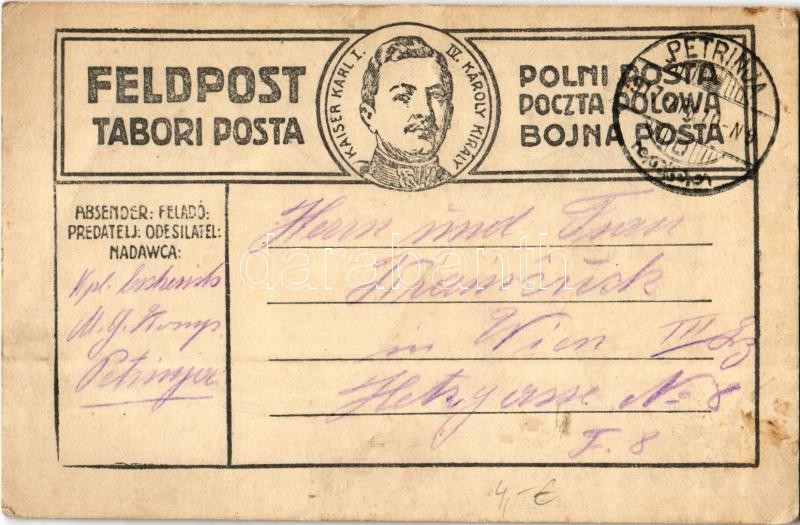 FELDPOST
TABORI POSTA
KAISER KARL I.
IV. KÁROLY KIRÁLY
POLNI POSTA
POCZTA POLOWA
BOJNA POSTA
PETRINJA
ABSENDER: FELADÓ:
PREDATELJ: ODESILATEL:
NADAWCA:
Kpl.
M. G. Komp.
Petrinja
Herrn und Frau
in Wien III
Hetzgasse No 8
T. 8
darabanth
4,- €